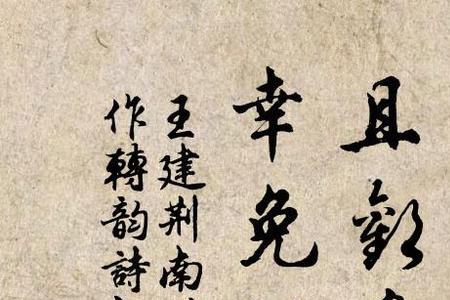 且
幸免
王建荆南
作轉韵詩